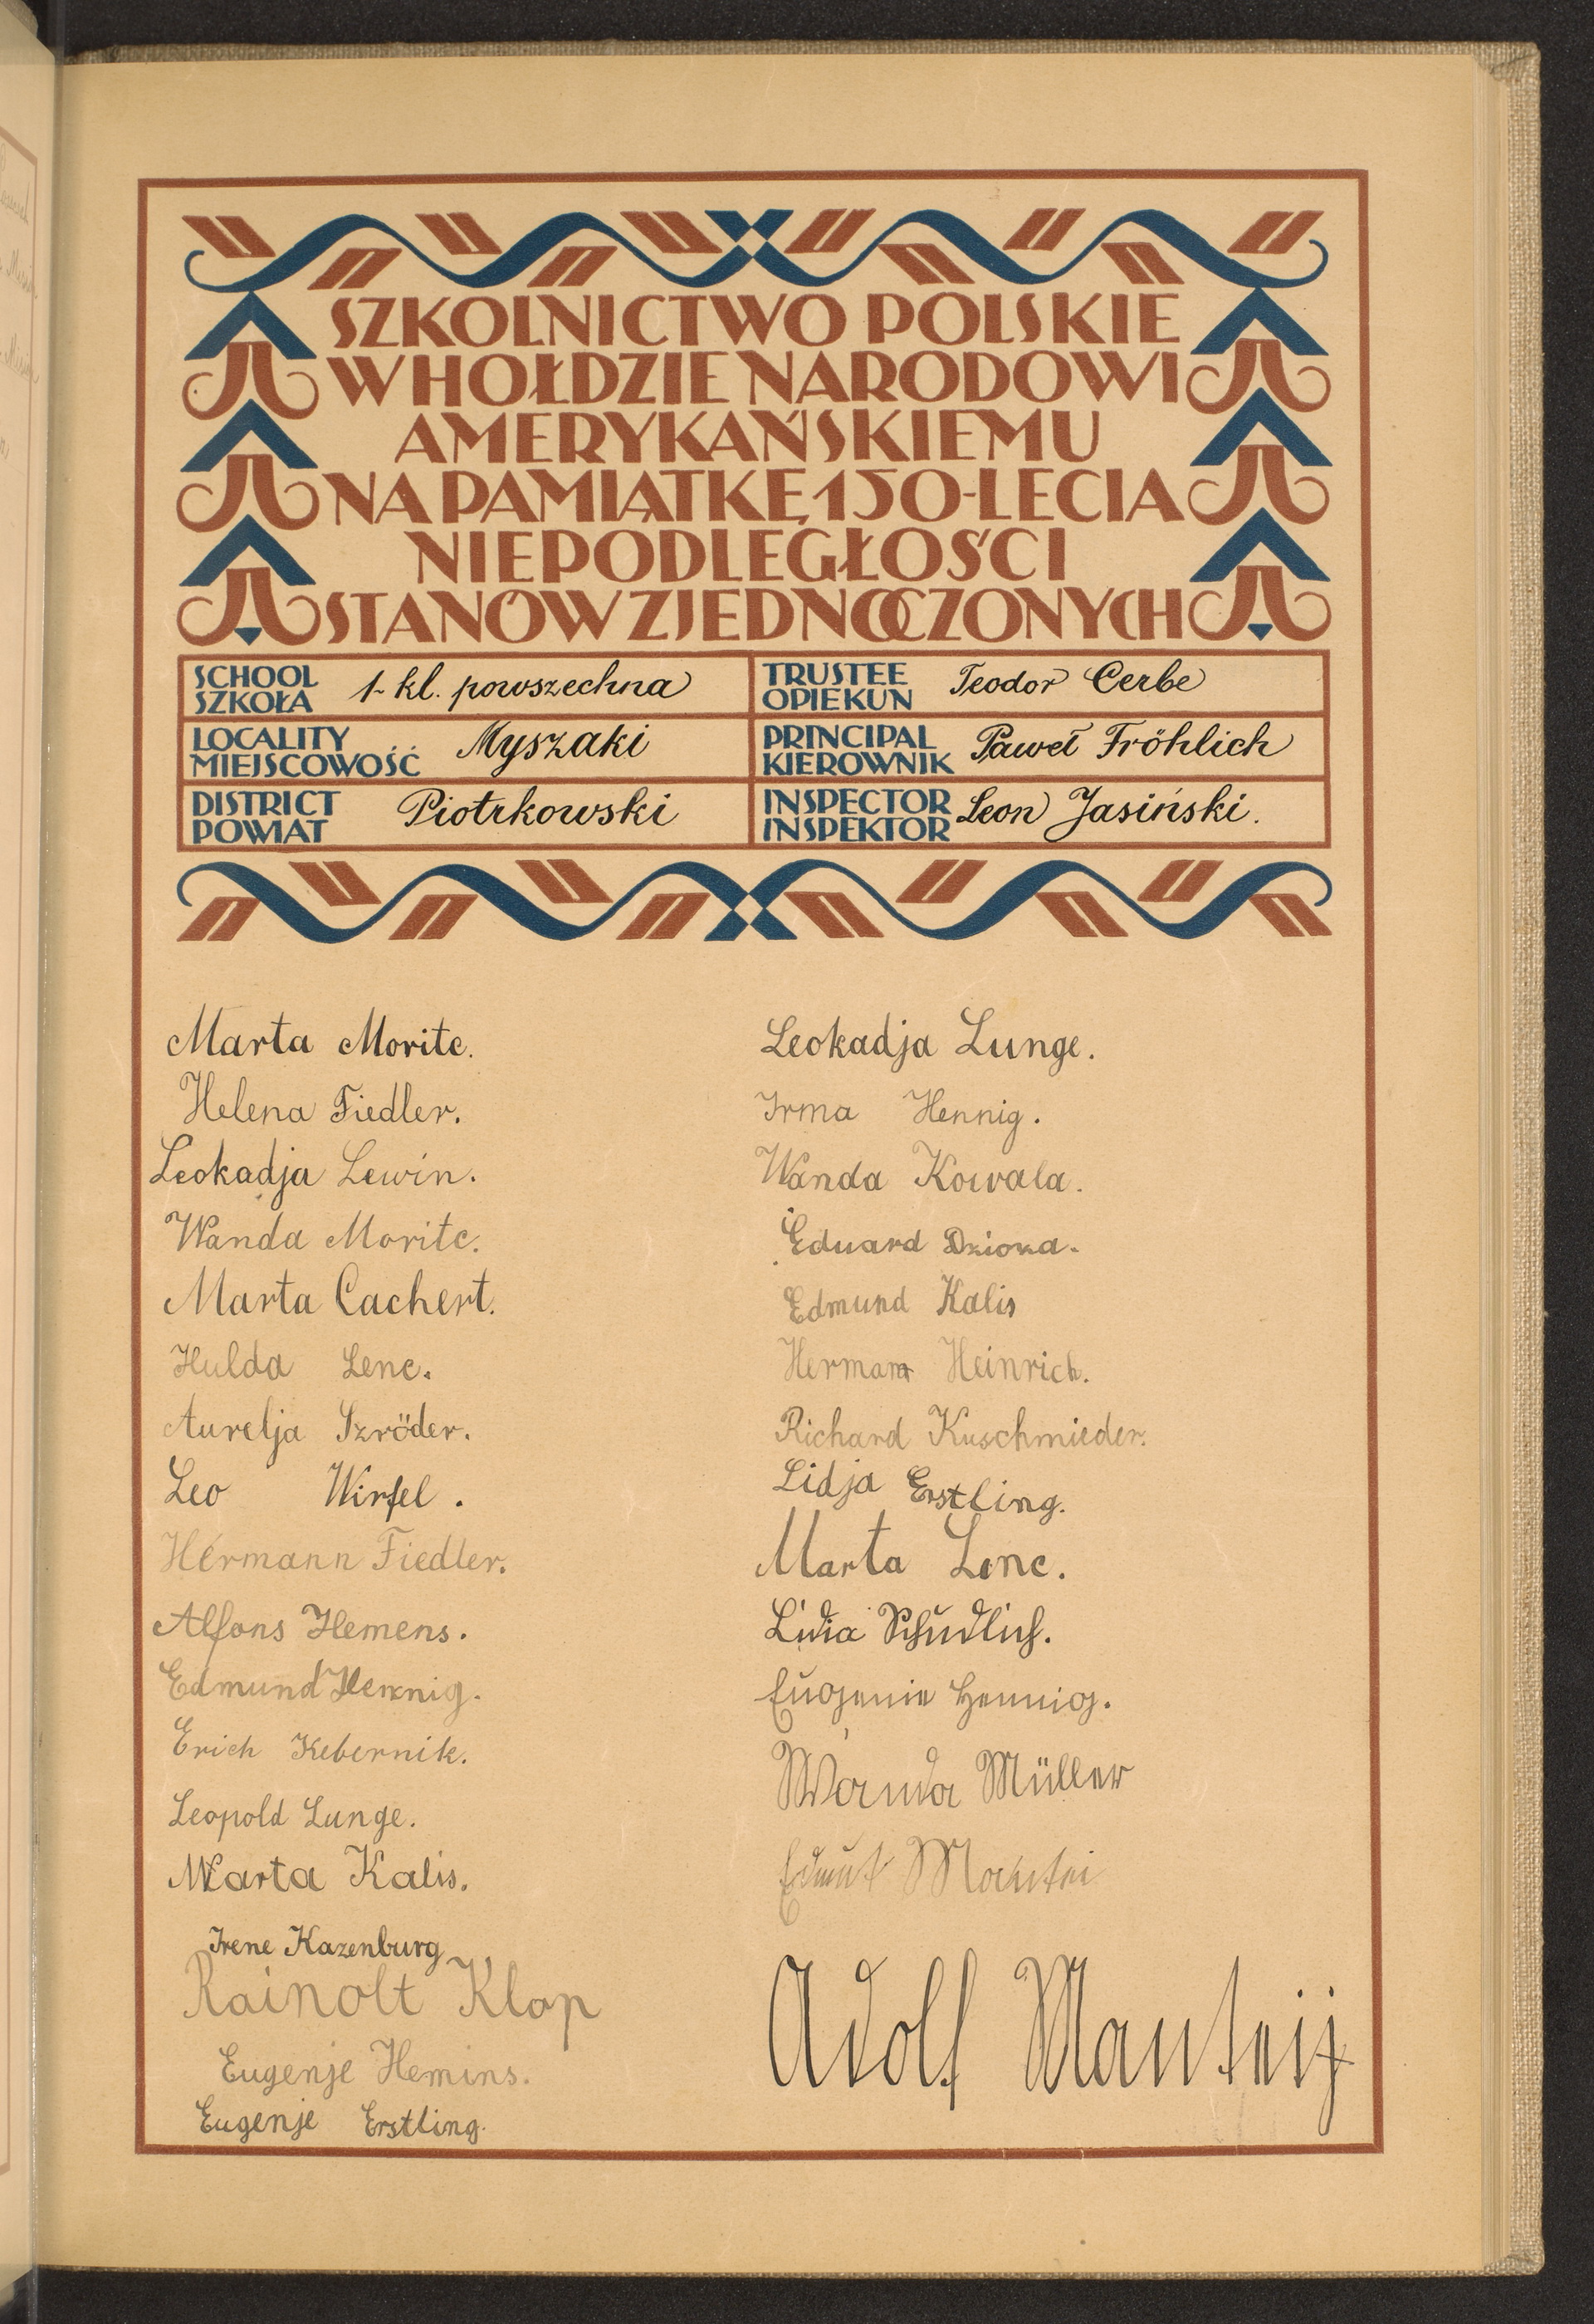 SZKOLNICTWO POLSKIE
W HOŁDZIE NARODOWI
AMERYKAŃSKIEMU
NA PAMIĄTKĘ 150-LECIA
NIEPODLEGŁOŚCI
STANÓW ZJEDNOCZONYCH
SCHOOL
SZKOŁA
1-kl. powszechna
TRUSTEE
OPIEKUN
Teodor Cerbe
LOCALITY
MIEJSCOWOŚĆ
Myszaki
PRINCIPAL
KIEROWNIK
Paweł Fröhlich
DISTRICT
POWIAT
Piotrkowski
INSPECTOR
INSPEKTOR
Leon Jasiński.
Marta Moritc.
Helena Fiedler.
Leokadja Lewin.
Wanda Moritc.
Marta Cachert.
Hulda Lenc.
Aurelja Szröder.
Leo Wirfel.
Hermann Fiedler.
Alfons Hemens.
Edmund Hennig.
Erich Kebernik.
Leopold Lunge.
Marta Kalis.
Irene Kazenburg
Rainolt Klap
Eugenje Hemins.
Eugenje Erstling.
Leokadja Lunge.
Irma Hennig.
Wanda Kowala.
Eduard
Edmund Kalis
Hermann Heinrich.
Richard Kuschmieder.
Lidja Erstling.
Marta Lenc.
Lidia Schudlich.
Eugenie Hennig.
Wanda Müller
Mantei
Adolf Manteij